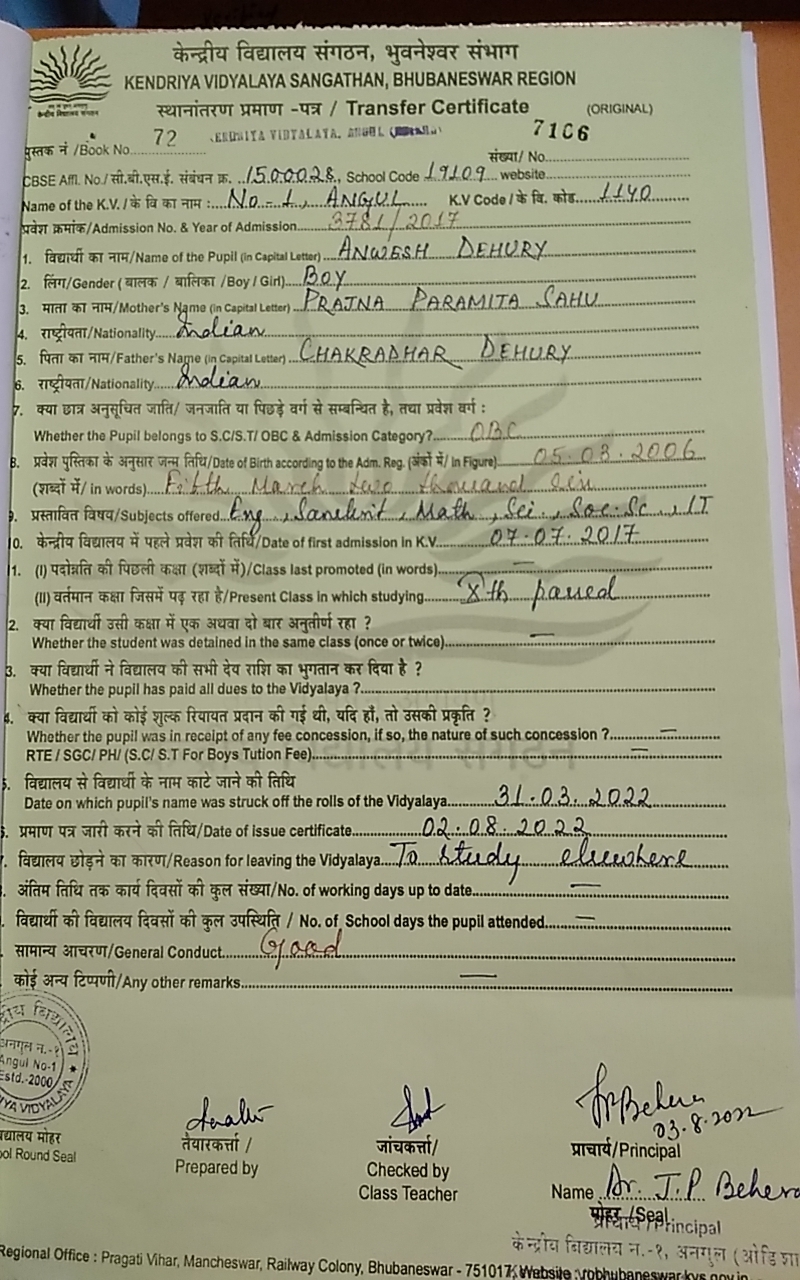 केन्द्रीय विद्यालय संगठन, भुवनेश्वर संभाग
KENDRIYA VIDYALAYA SANGATHAN, BHUBANESWAR REGION
केन्द्रीय विद्यालय संगठन
स्थानांतरण प्रमाण -पत्र / Transfer Certificate (ORIGINAL)
पुस्तक नं /Book No 72 KENDRIYA VIDYALAYA, ANGUL संख्या/ No 7106
CBSE Affl. No./सी.बी.एस.ई. संबंधन क्र. 1500028, School Code 19109 website
Name of the K.V. / के वि का नाम : No-1, ANGUL K.V Code / के. वि. कोड 1140
प्रवेश क्रमांक/Admission No. & Year of Admission 3781/2017
1. विद्यार्थी का नाम/Name of the Pupil (in Capital Letter) ANWESH DEHURY
2. लिंग/Gender ( बालक / बालिका /Boy / Girl) BOY
3. माता का नाम/Mother's Name (in Capital Letter) PRAJNA PARAMITA SAHU
4. राष्ट्रीयता/Nationality Indian
5. पिता का नाम/Father's Name (in Capital Letter) CHAKRADHAR DEHURY
6. राष्ट्रीयता/Nationality Indian
7. क्या छात्र अनुसूचित जाति/ जनजाति या पिछड़े वर्ग से सम्बन्धित है, तथा प्रवेश वर्ग :
Whether the Pupil belongs to S.C/S.T/ OBC & Admission Category? OBC
8. प्रवेश पुस्तिका के अनुसार जन्म तिथि/Date of Birth according to the Adm. Reg. (अंकों में/ In Figure) 05.03.2006
(शब्दों में/ in words) Fifth March two thousand six
9. प्रस्तावित विषय/Subjects offered Eng., Sanskrit, Math, Sci., Soc.Sc., IT
10. केन्द्रीय विद्यालय में पहले प्रवेश की तिथि/Date of first admission in K.V. 07.07.2017
11. (I) पदोन्नति की पिछली कक्षा (शब्दों में)/Class last promoted (in words) —
(II) वर्तमान कक्षा जिसमें पढ़ रहा है/Present Class in which studying Xth passed
2. क्या विद्यार्थी उसी कक्षा में एक अथवा दो बार अनुतीर्ण रहा ?
Whether the student was detained in the same class (once or twice) —
3. क्या विद्यार्थी ने विद्यालय की सभी देय राशि का भुगतान कर दिया है ?
Whether the pupil has paid all dues to the Vidyalaya ?
4. क्या विद्यार्थी को कोई शुल्क रियायत प्रदान की गई थी, यदि हाँ, तो उसकी प्रकृति ?
Whether the pupil was in receipt of any fee concession, if so, the nature of such concession ? —
RTE / SGC/ PH/ (S.C/ S.T For Boys Tution Fee) —
5. विद्यालय से विद्यार्थी के नाम काटे जाने की तिथि
Date on which pupil's name was struck off the rolls of the Vidyalaya 31.03.2022
प्रमाण पत्र जारी करने की तिथि/Date of issue certificate 02.08.2022
विद्यालय छोड़ने का कारण/Reason for leaving the Vidyalaya To study elsewhere
अंतिम तिथि तक कार्य दिवसों की कुल संख्या/No. of working days up to date —
विद्यार्थी की विद्यालय दिवसों की कुल उपस्थिति / No. of School days the pupil attended —
सामान्य आचरण/General Conduct Good
कोई अन्य टिप्पणी/Any other remarks —
अनगुल न.-१
Angul No-1
Estd.-2000
03.8.2022
तैयारकर्त्ता / जांचकर्त्ता/ प्राचार्य/Principal
Prepared by Checked by
Class Teacher
Name Dr. J.P Behera
मोहर /Seal
प्राचार्य /Principal
केन्द्रीय विद्यालय न.-१, अनगुल (ओडिशा
Regional Office : Pragati Vihar, Mancheswar, Railway Colony, Bhubaneswar - 751017, Website : robhubaneswar.kvs.gov.in